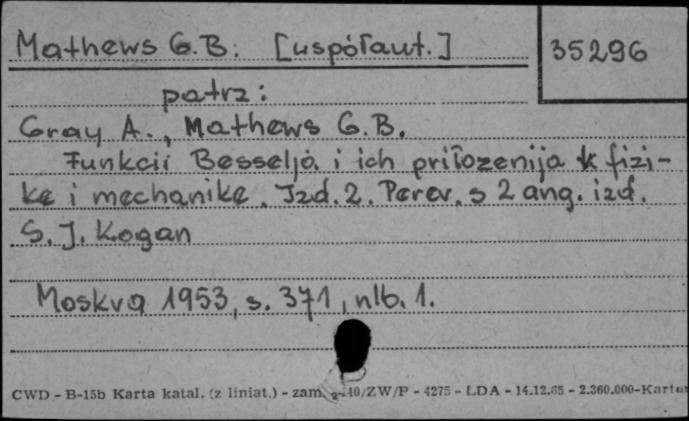 Mathews G.B. [współaut.]
35296
patrz:
Gray A., Mathews G.B.
Funkcii Besselja i ich priłozenija k fizi-
ke i mechanike. Izd. 2. Perev. s 2 ang. izd.
S. J. Kogan
Moskva 1953, s. 371, nlb. 1.
CWD - B-15b Karta katal. (z liniat.) - zam. 40/ZW/P - 4275 - LDA - 14.12.65 - 2.360.000-Kartor